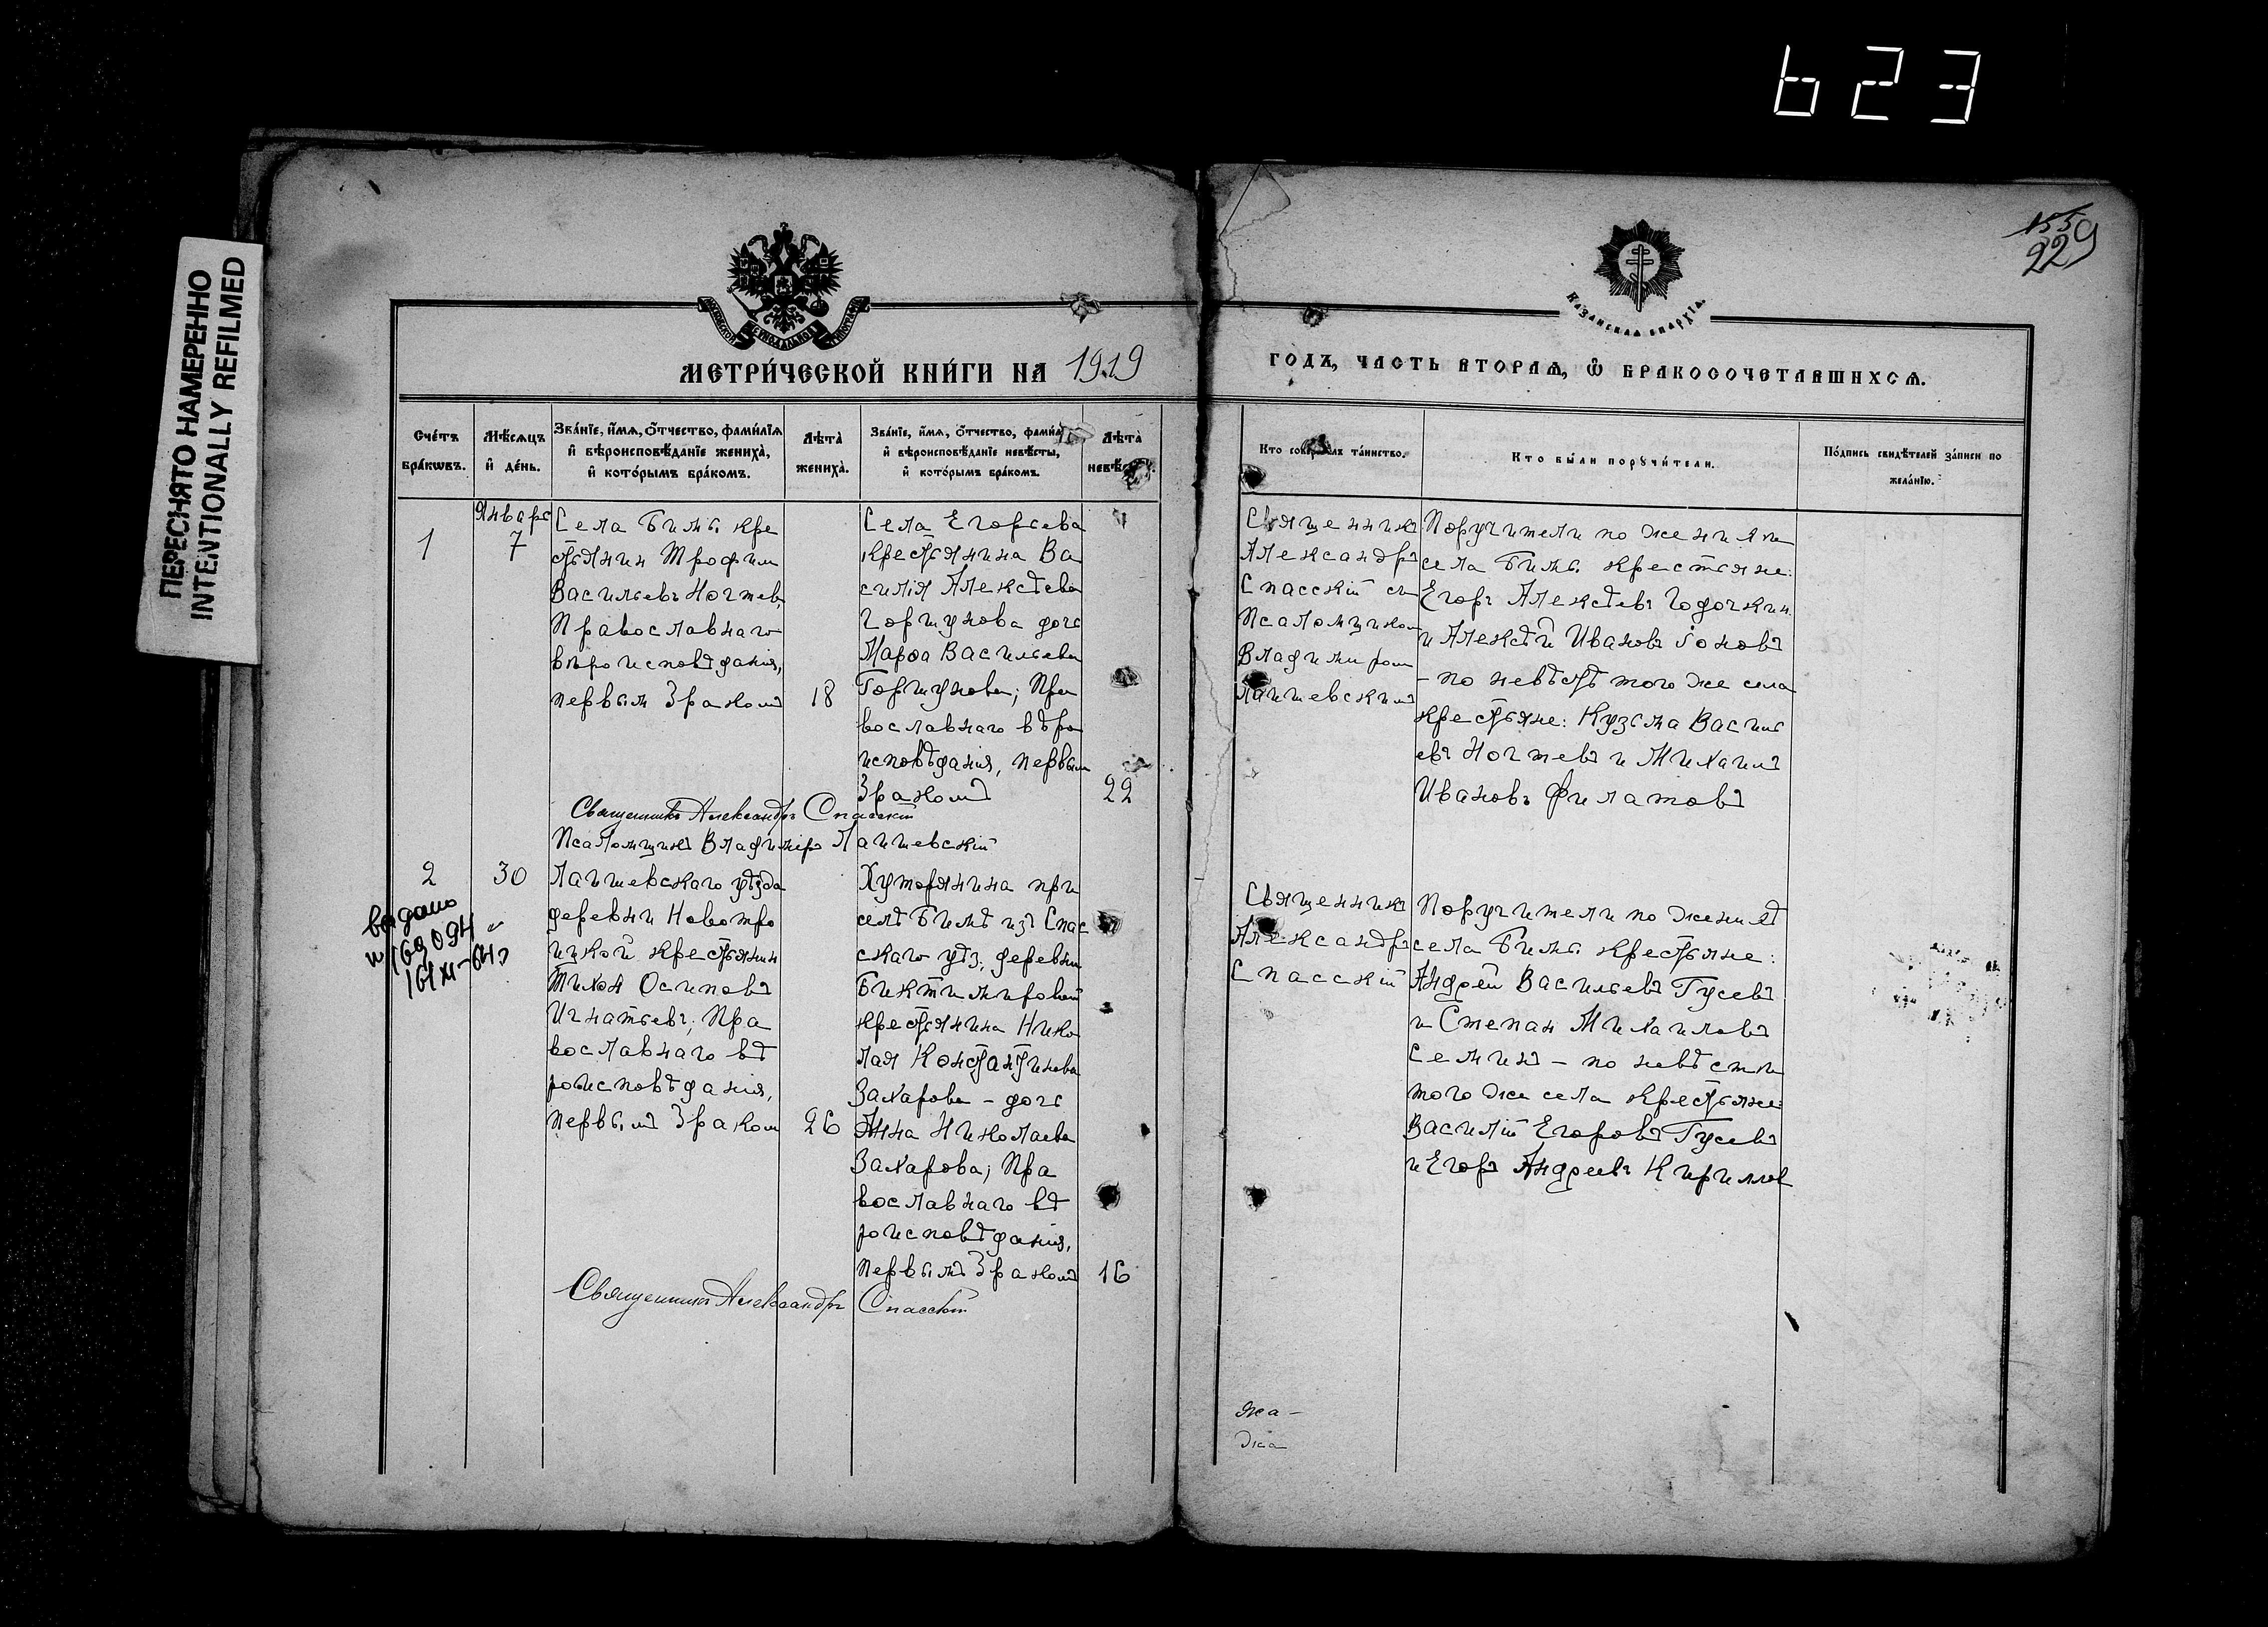 623
ПЕРЕСНЯТО НАМЕРЕННО
INTENTIONALLY REFILMED
155
229
КАЗАНСКАЯ ЕПАРХІА.
МЕТРИ́ЧЕСКОЙ КНИ́ГИ НА 1919
ГОДЪ, ЧАСТЬ ВТОРАѦ, Ѿ БРАКОСОЧЕТАВШИХСѦ.
Сче́тъ
бра́кѡвъ.
Мѣ́сѧцъ
и҆ де́нь.
Зва́нїе, и҆́мѧ, ѻ҆́тчество, фами́лїѧ
и҆ вѣроисповѣ́данїе жениха̀,
и҆ кото́рымъ бра́комъ.
Лѣта̀
жениха̀.
Зва́нїе, и҆́мѧ, ѻ҆́тчество,
и҆ вѣроисповѣ́данїе невѣ́сты,
и҆ кото́рымъ бра́комъ.
Лѣта̀
Кто та́инство.
Кто бы́ли порꙋчи́тели.
По́дпись свидѣ́телей за́писи по
жела́нїю.
1
Январь
7
Села Бимь кре
стьянин Трофим
Васильевъ Ногтев,
Православнаго
вѣроисповѣданія,
первым браком
18
Села Егорьева
крестьянина Ва
силія Алексѣева
Горшунова дочь
Марѳа Васильева
Горшунова; Пра
вославнаго вѣро
исповѣданія, первым
браком
22
Священникъ
Александръ
Спасскій съ
Псаломщиком
Владимиром
Лаишевским
Поручители по жениха
села Бимь крестьяне:
Егоръ Алексѣевъ Годочкин
и Алексѣй Ивановъ Іоновъ
- по невѣстѣ того же села
крестьяне: Кузьма Василь
евъ Ногтевъ и Михаилъ
Ивановъ Филатовъ
Священникъ Александръ Спасскій
Псаломщикъ Владиміръ Лаишевскій
2
30
выдано
169094
Лаишевскаго уѣзда
деревни Новотро
ицкой крестьянин
Тихон Осиповъ
Игнатьевъ; Пра
вославнаго вѣ
роисповѣданія,
первым браком
26
Хуторянина при
селѣ Бимѣ изъ Спас
скаго уѣз. деревни
Биктимировой
крестьянина Нико
лая Константинова
Захарова - дочь
Анна Николаева
Захарова; Пра
вославнаго вѣ
роисповѣданія,
первымъ браком
16
Священникъ
Александръ
Спасскій
Поручители по женихѣ
села Бимь крестьяне:
Андрей Васильевъ Гусевъ
и Степан Михаиловъ
Семинъ - по невѣсти
того же села крестьяне:
Василій Егоровъ Гусевъ
и Егоръ Андреевъ Кирилов
Священникъ Александръ Спасскій